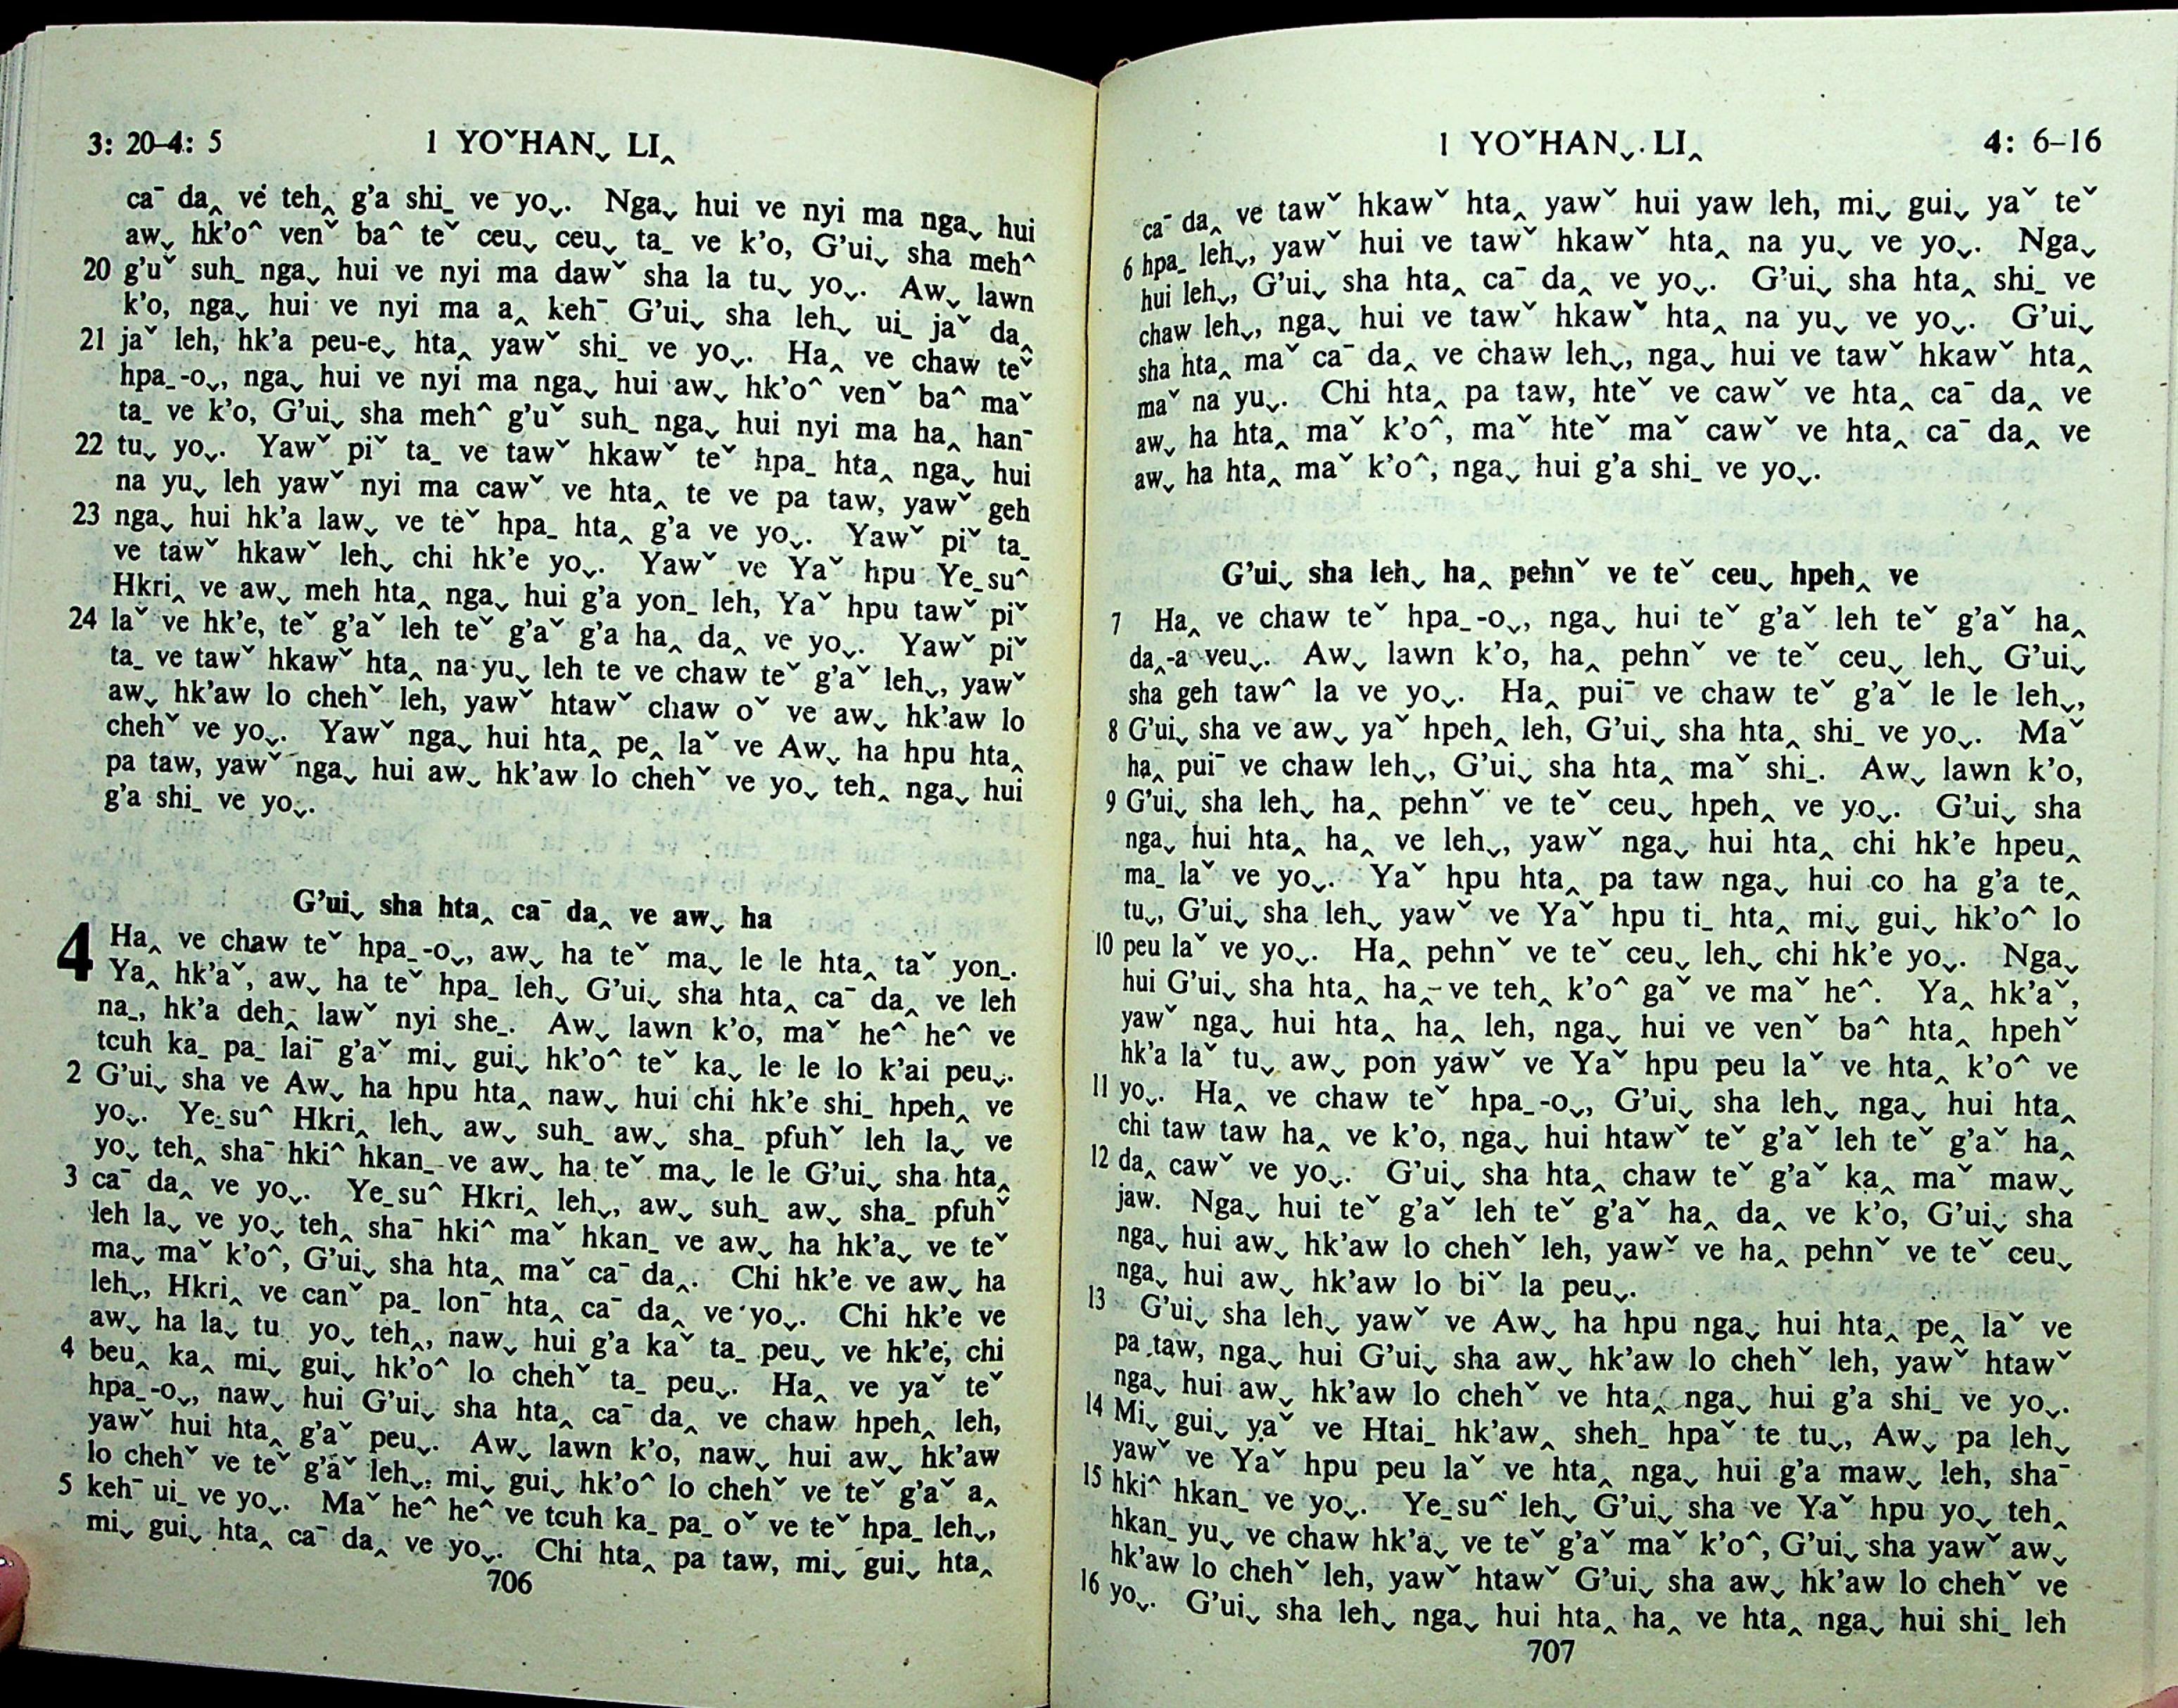 3: 20–4: 5 1 YOˇHANˬ LI‸
caˉ da‸ ve teh‸ g'a shi_ ve yoˬ. Ngaˬ hui ve nyi ma ngaˬ hui
awˬ hk'o^ venˇ ba^ teˇ ceuˬ ceuˬ ta_ ve k'o, G'uiˬ sha meh^
20 g'uˇ suh_ ngaˬ hui ve nyi ma dawˇ sha la tuˬ yoˬ. Awˬ lawn
k'o, ngaˬ hui ve nyi ma a‸ kehˉ G'uiˬ sha lehˬ ui_ jaˇ da‸
21 jaˇ leh, hk'a peu-eˬ hta‸ yawˇ shi_ ve yoˬ. Ha‸ ve chaw teˇ
hpa_-oˬ, ngaˬ hui ve nyi ma ngaˬ hui awˬ hk'o^ venˇ ba^ maˇ
ta_ ve k'o, G'uiˬ sha meh^ g'uˇ suh_ ngaˬ hui nyi ma ha‸ hanˉ
22 tuˬ yoˬ. Yawˇ piˇ ta_ ve tawˇ hkawˇ teˇ hpa_ hta‸ ngaˬ hui
na yuˬ leh yawˇ nyi ma cawˇ ve hta‸ te ve pa taw, yawˇ geh
23 ngaˬ hui hk'a lawˬ ve teˇ hpa_ hta‸ g'a ve yoˬ. Yawˇ piˇ ta_
ve tawˇ hkawˇ lehˬ chi hk'e yoˬ. Yawˇ ve Yaˇ hpu Ye_su^
Hkri‸ ve awˬ meh hta‸ ngaˬ hui g'a yon_ leh, Yaˇ hpu tawˇ piˇ
24 laˇ ve hk'e, teˇ g'aˇ leh teˇ g'aˇ g'a ha‸ da‸ ve yoˬ. Yawˇ piˇ
ta_ ve tawˇ hkawˇ hta‸ na yuˬ leh te ve chaw teˇ g'aˇ lehˬ, yawˇ
awˬ hk'aw lo chehˇ leh, yawˇ htawˇ chaw oˇ ve awˬ hk'aw lo
chehˇ ve yoˬ. Yawˇ ngaˬ hui hta‸ pe‸ laˇ ve Awˬ ha hpu hta‸
pa taw, yawˇ ngaˬ hui awˬ hk'aw lo chehˇ ve yoˬ teh‸ ngaˬ hui
g'a shi_ ve yoˬ.
G'uiˬ sha hta‸ caˉ da‸ ve awˬ ha
4 Ha‸ ve chaw teˇ hpa_-oˬ, awˬ ha teˇ maˬ le le hta‸ taˇ yon_.
Ya‸ hk'aˇ, awˬ ha teˇ hpa_ lehˬ G'uiˬ sha hta‸ caˉ da‸ ve leh
na_, hk'a deh‸ lawˇ nyi she_. Awˬ lawn k'o, maˇ he^ he^ ve
tcuh ka_ pa_ laiˉ g'aˇ miˬ guiˬ hk'o^ teˇ kaˬ le le lo k'ai peuˬ.
2 G'uiˬ sha ve Awˬ ha hpu hta‸ nawˬ hui chi hk'e shi_ hpeh‸ ve
yoˬ. Ye_su^ Hkri‸ lehˬ awˬ suh_ awˬ sha_ pfuhˇ leh laˬ ve
yoˬ teh‸ shaˉ hki^ hkan_ ve awˬ ha teˇ maˬ le le G'uiˬ sha hta‸
3 caˉ da‸ ve yoˬ. Ye_su^ Hkri‸ lehˬ, awˬ suh_ awˬ sha_ pfuhˇ
leh laˬ ve yoˬ teh‸ shaˉ hki^ maˇ hkan_ ve awˬ ha hk'aˬ ve teˇ
maˬ maˇ k'o^, G'uiˬ sha hta‸ maˇ caˉ da‸. Chi hk'e ve awˬ ha
lehˬ, Hkri‸ ve canˇ pa_ lonˉ hta‸ caˉ da‸ ve yoˬ. Chi hk'e ve
awˬ ha laˬ tuˬ yoˬ teh‸, nawˬ hui g'a kaˇ ta_ peuˬ ve hk'e, chi
4 beu‸ ka‸ miˬ guiˬ hk'o^ lo chehˇ ta_ peuˬ. Ha‸ ve yaˇ teˇ
hpa_-oˬ, nawˬ hui G'uiˬ sha hta‸ caˉ da‸ ve chaw hpeh‸ leh,
yawˇ hui hta‸ g'aˇ peuˬ. Awˬ lawn k'o, nawˬ hui awˬ hk'aw
lo chehˇ ve teˇ g'aˇ lehˬ, miˬ guiˬ hk'o^ lo chehˇ ve teˇ g'aˇ a‸
5 kehˉ ui_ ve yoˬ. Maˇ he^ he^ ve tcuh ka_ pa_ oˇ ve teˇ hpa_ lehˬ,
miˬ guiˬ hta‸ caˉ da‸ ve yoˬ. Chi hta‸ pa taw, miˬ guiˬ hta‸
706
1 YOˇHANˬ LI‸ 4: 6–16
caˉ da‸ ve tawˇ hkawˇ hta‸ yawˇ hui yaw leh, miˬ guiˬ yaˇ teˇ
6 hpa_ lehˬ, yawˇ hui ve tawˇ hkawˇ hta‸ na yuˬ ve yoˬ. Ngaˬ
hui lehˬ, G'uiˬ sha hta‸ caˉ da‸ ve yoˬ. G'uiˬ sha hta‸ shi_ ve
chaw lehˬ, ngaˬ hui ve tawˇ hkawˇ hta‸ na yuˬ ve yoˬ. G'uiˬ
sha hta‸ maˇ caˉ da‸ ve chaw lehˬ, ngaˬ hui ve tawˇ hkawˇ hta‸
maˇ na yuˬ. Chi hta‸ pa taw, hteˇ ve cawˇ ve hta‸ caˉ da‸ ve
awˬ ha hta‸ maˇ k'o^, maˇ hteˇ maˇ cawˇ ve hta‸ caˉ da‸ ve
awˬ ha hta‸ maˇ k'o^, ngaˬ hui g'a shi_ ve yoˬ.
G'uiˬ sha lehˬ ha‸ pehnˇ ve teˇ ceuˬ hpeh‸ ve
7 Ha‸ ve chaw teˇ hpa_-oˬ, ngaˬ hui teˇ g'aˇ leh teˇ g'aˇ ha‸
da‸-a veuˬ. Awˬ lawn k'o, ha‸ pehnˇ ve teˇ ceuˬ lehˬ G'uiˬ
sha geh taw^ la ve yoˬ. Ha‸ puiˉ ve chaw teˇ g'aˇ le le lehˬ,
8 G'uiˬ sha ve awˬ yaˇ hpeh‸ leh, G'uiˬ sha hta‸ shi_ ve yoˬ. Maˇ
ha‸ puiˉ ve chaw lehˬ, G'uiˬ sha hta‸ maˇ shi_. Awˬ lawn k'o,
9 G'uiˬ sha lehˬ ha‸ pehnˇ ve teˇ ceuˬ hpeh‸ ve yoˬ. G'uiˬ sha
ngaˬ hui hta‸ ha‸ ve lehˬ, yawˇ ngaˬ hui hta‸ chi hk'e hpeu‸
ma_ laˇ ve yoˬ. Yaˇ hpu hta‸ pa taw ngaˬ hui co ha g'a te‸
tuˬ, G'uiˬ sha lehˬ yawˇ ve Yaˇ hpu ti_ hta‸ miˬ guiˬ hk'o^ lo
10 peu laˇ ve yoˬ. Ha‸ pehnˇ ve teˇ ceuˬ lehˬ chi hk'e yoˬ. Ngaˬ
hui G'uiˬ sha hta‸ ha‸ ve teh‸ k'o^ gaˇ ve maˇ he^. Ya‸ hk'aˇ,
yawˇ ngaˬ hui hta‸ ha‸ leh, ngaˬ hui ve venˇ ba^ hta‸ hpehˇ
hk'a laˇ tuˬ awˬ pon yawˇ ve Yaˇ hpu peu laˇ ve hta‸ k'o^ ve
11 yoˬ. Ha‸ ve chaw teˇ hpa_-oˬ, G'uiˬ sha lehˬ ngaˬ hui hta‸
chi taw taw ha‸ ve k'o, ngaˬ hui htawˇ teˇ g'aˇ leh teˇ g'aˇ ha‸
12 da‸ cawˇ ve yoˬ. G'uiˬ sha hta‸ chaw teˇ g'aˇ ka‸ maˇ mawˬ
jaw. Ngaˬ hui teˇ g'aˇ leh teˇ g'aˇ ha‸ da‸ ve k'o, G'uiˬ sha
ngaˬ hui awˬ hk'aw lo chehˇ leh, yawˇ ve ha‸ pehnˇ ve teˇ ceuˬ
ngaˬ hui awˬ hk'aw lo biˇ la peuˬ.
13 G'uiˬ sha lehˬ yawˇ ve Awˬ ha hpu ngaˬ hui hta‸ pe‸ laˇ ve
pa taw, ngaˬ hui G'uiˬ sha awˬ hk'aw lo chehˇ leh, yawˇ htawˇ
ngaˬ hui awˬ hk'aw lo chehˇ ve hta‸ ngaˬ hui g'a shi_ ve yoˬ.
14 Miˬ guiˬ yaˇ ve Htai_ hk'aw‸ sheh_ hpaˇ te tuˬ, Awˬ pa lehˬ
yawˇ ve Yaˇ hpu peu laˇ ve hta‸ ngaˬ hui g'a mawˬ leh, shaˉ
15 hki^ hkan_ ve yoˬ. Ye_su^ lehˬ G'uiˬ sha ve Yaˇ hpu yoˬ teh‸
hkan_ yuˬ ve chaw hk'aˬ ve teˇ g'aˇ maˇ k'o^, G'uiˬ sha yawˇ awˬ
hk'aw lo chehˇ leh, yawˇ htawˇ G'uiˬ sha awˬ hk'aw lo chehˇ ve
16 yoˬ. G'uiˬ sha lehˬ ngaˬ hui hta‸ ha‸ ve hta‸ ngaˬ hui shi_ leh
707